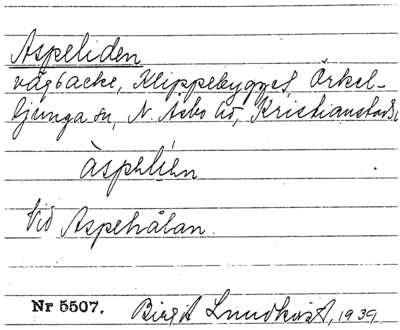 Aspeliden
vägbacke, Klippebygget, Örkel-
ljunga sn, N. Åsbo hd, Kristianstads l
àspelíen
Vid Aspehålan.
Nr 5507. Birgit Lundkvist, 1939